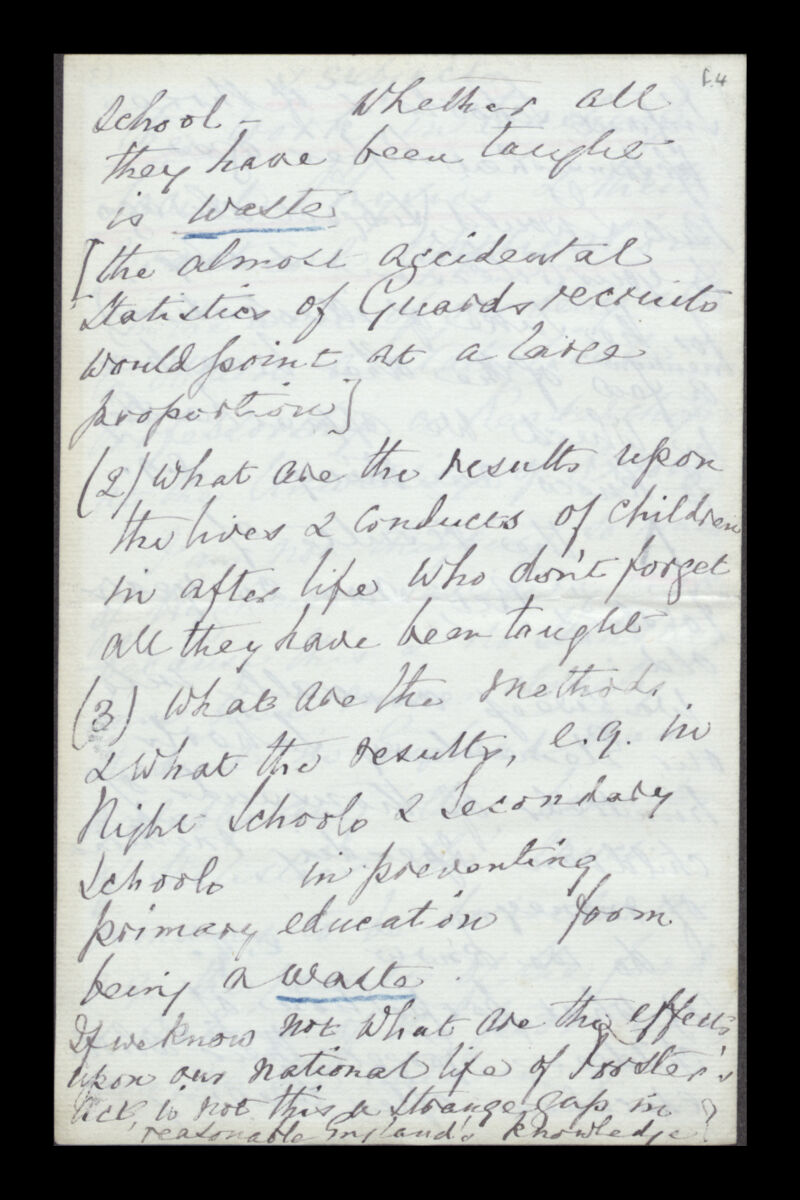 f.4
School – Whether all
they have been taught
is waste
[the almost accidental
Statistics of Guards recruits
would point at a large
proportion]
(2) What are the results upon
the lives & conducts of children
in after life who don't forget
all they have been taught
(3) What are the methods
& what the results, e.g. in
Night Schools & Secondary
Schools in preventing
primary education from
being a waste.
If we know not what are the effects
upon our national life of Forster's
Act, is not this a strange gap in
reasonable England's knowledge?